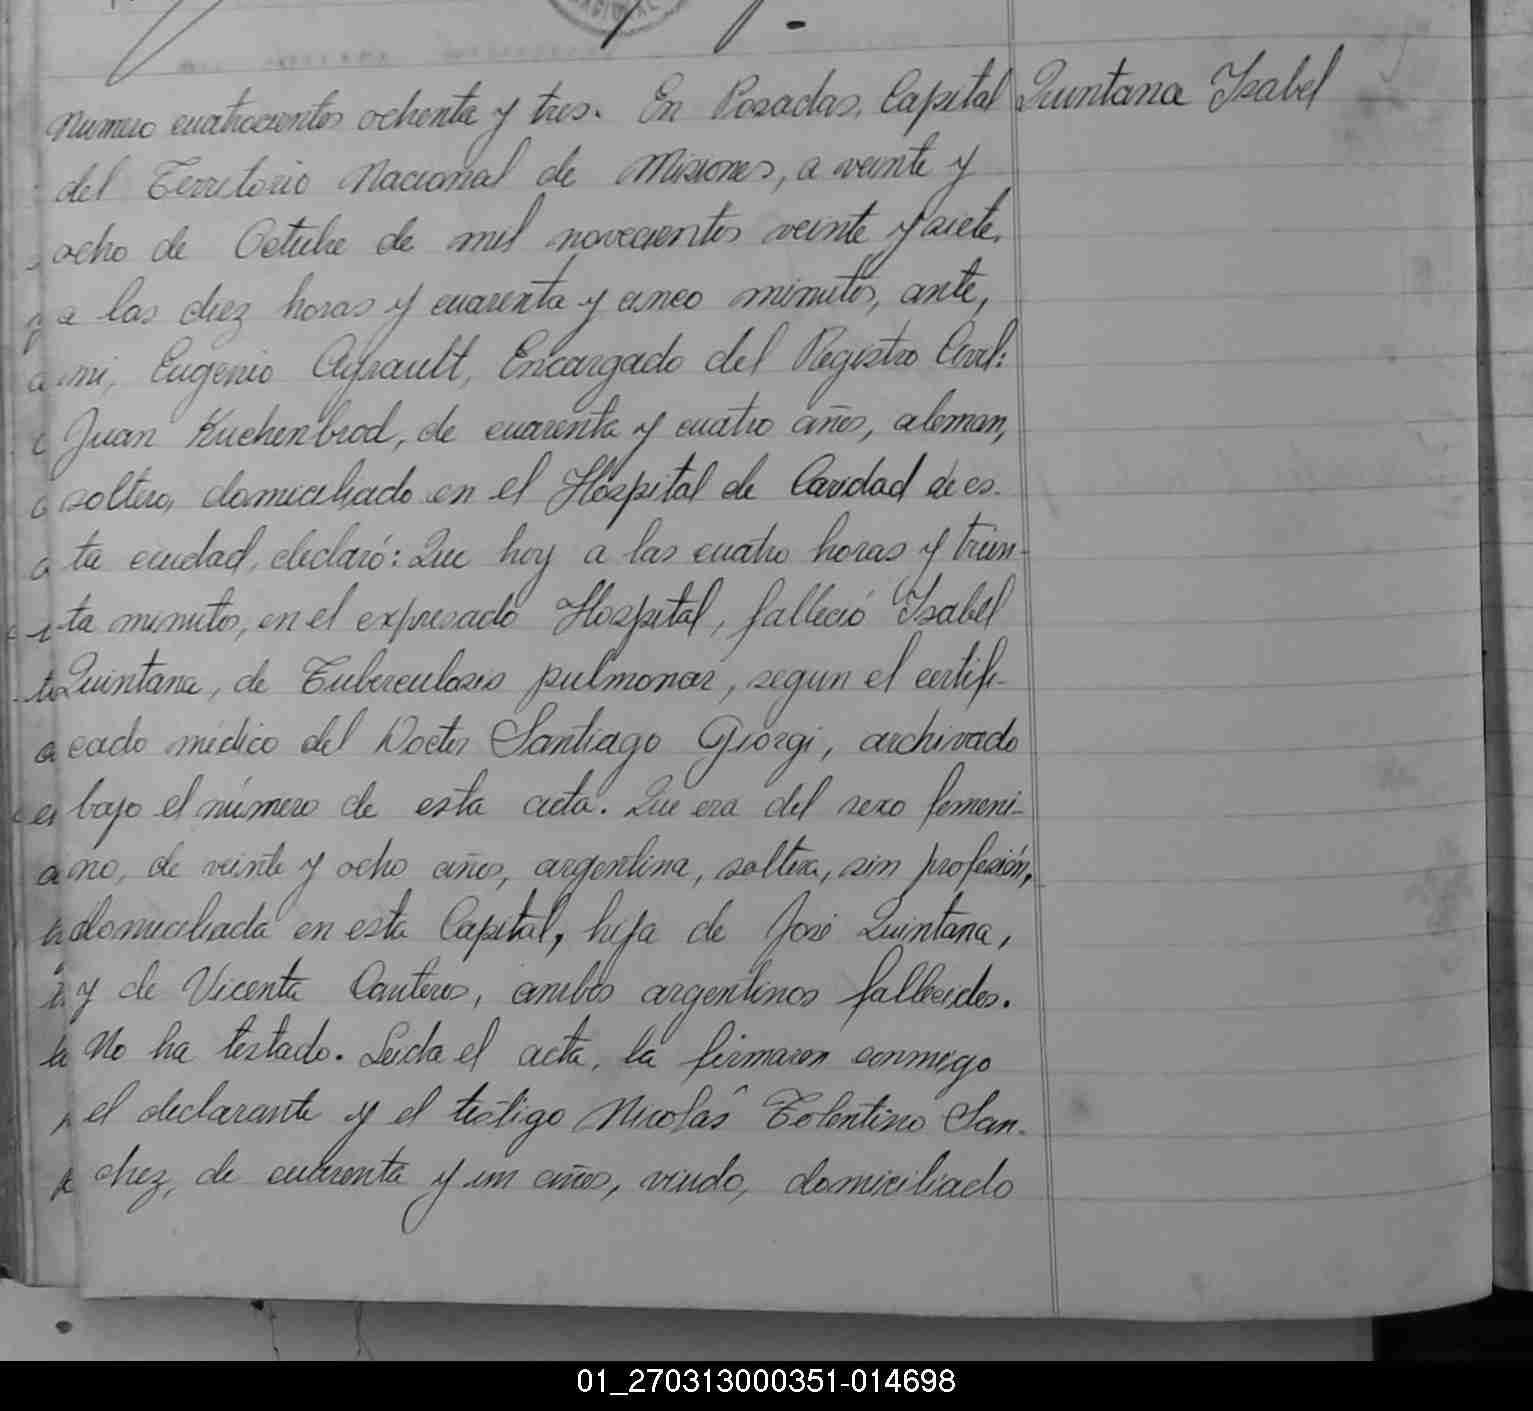 Quintana Isabel
Numero cuatrocientos ochenta y tres. En Posadas, Capital
del Territorio Nacional de Misiones, a veinte y
ocho de Octubre de mil novecientos veinte y siete,
a las diez horas y cuarenta y cinco minutos, ante,
mi, Eugenio Ayrault, Encargado del Registro Civil:
Juan Kuchenbrod, de cuarenta y cuatro años, aleman,
soltero, domiciliado en el Hospital de Caridad de es-
ta ciudad, declaró: Que hoy a las cuatro horas y trein-
ta minutos, en el expresado Hospital, falleció Isabel
Quintana, de Tuberculosis pulmonar, segun el certifi-
cado médico del Doctor Santiago Giorgi, archivado
bajo el número de esta acta. Que era del sexo femeni-
no, de veinte y ocho años, argentina, soltera, sin profesión,
domiciliada en esta Capital, hija de José Quintana,
y de Vicenta Canteros, ambos argentinos fallecidos.
No ha testado. Leida el acta, la firmaron conmigo
el declarante y el testigo Nicolás Tolentino San-
chez, de cuarenta y un años, viudo, domiciliado
01_270313000351-014698